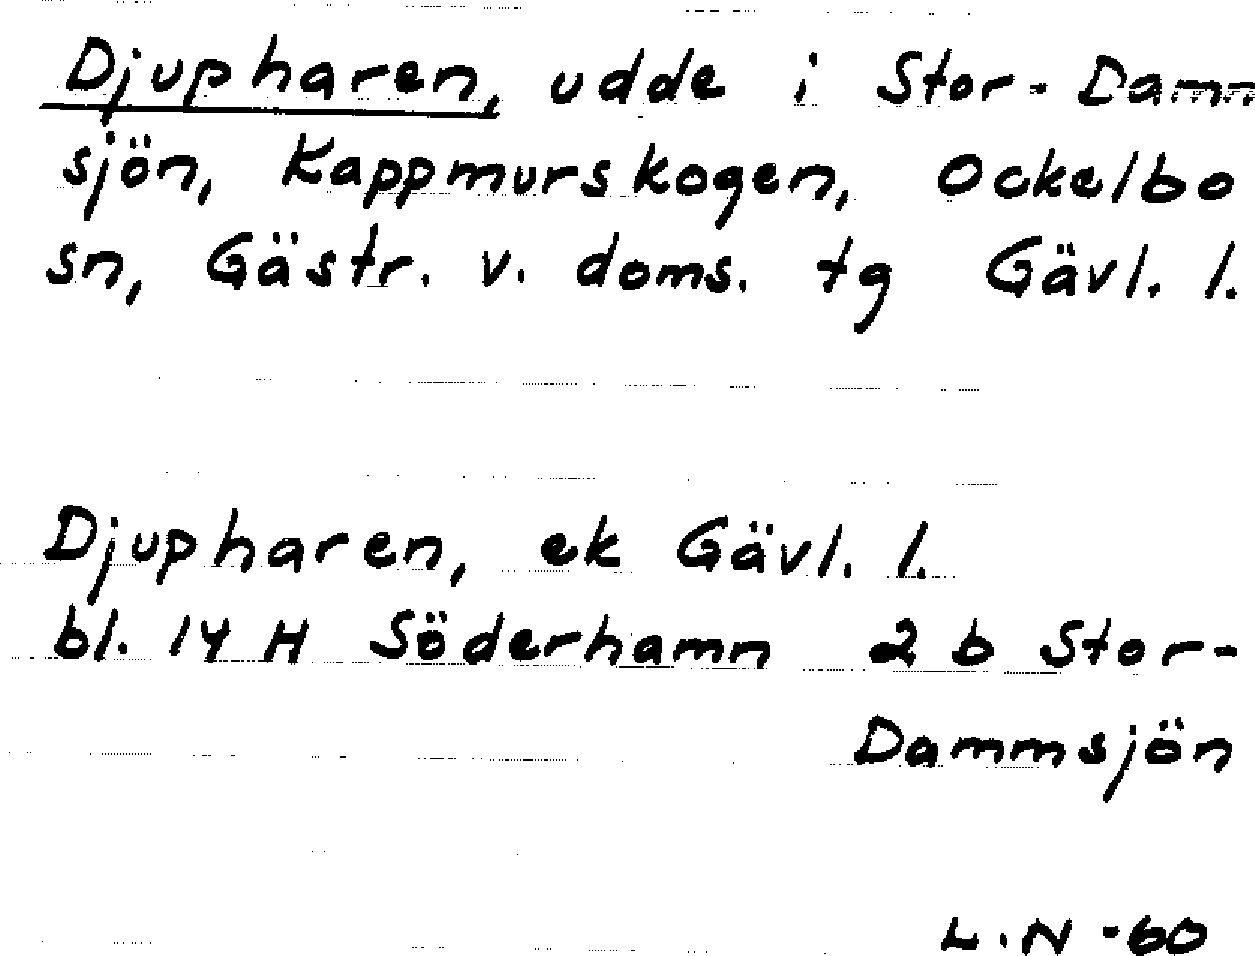 Djupharen, udde i Stor-Damm
sjön, Kappmurskogen, Ockelbo
sn, Gästr. v. doms. tg Gävl. l.
Djupharen, ek Gävl. l.
bl. 14 H Söderhamn 2 b Stor-
Dammsjön
L.N -60